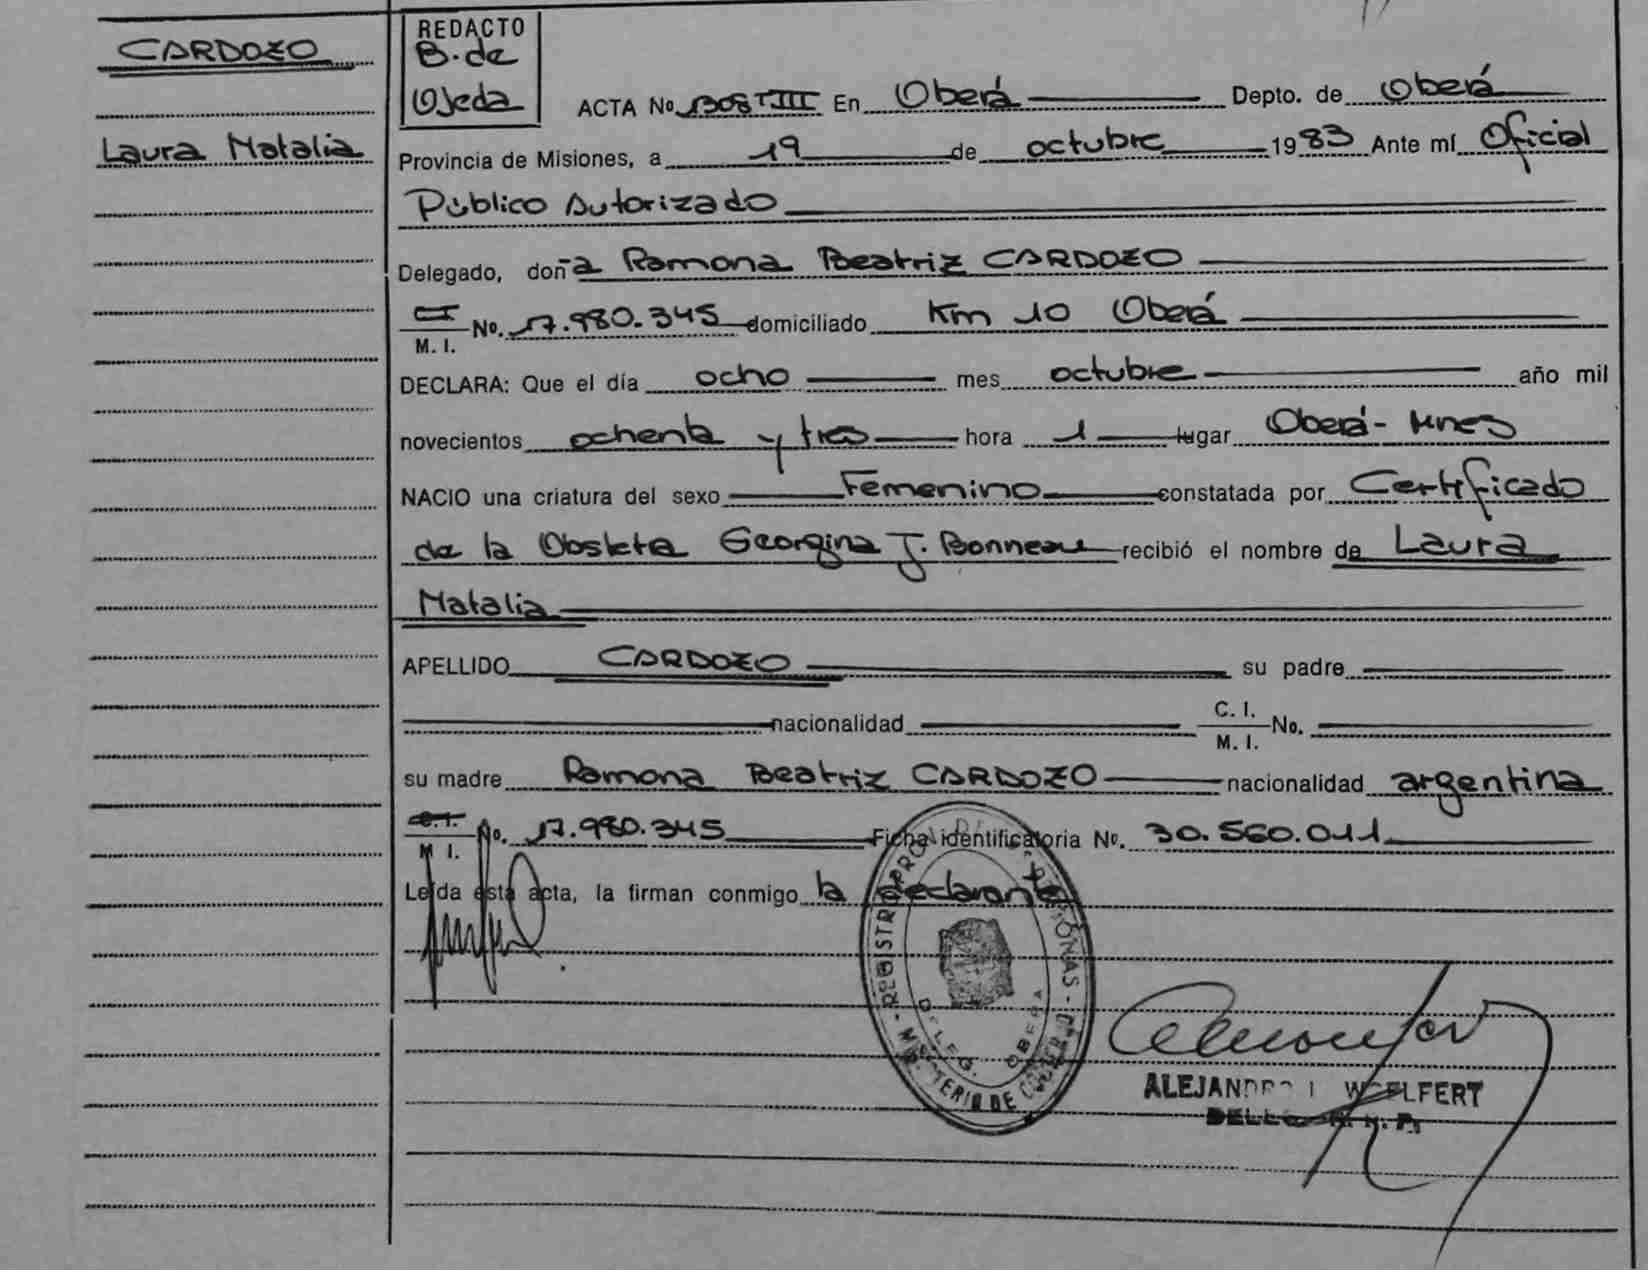 CARDOZO
Laura Natalia
REDACTO
B. de
Ojeda
ACTA No 1308 T III En Oberá Depto. de Oberá
Provincia de Misiones, a 19 de octubre 1983 Ante mí Oficial
Público Autorizado
Delegado, doña Ramona Beatriz CARDOZO
C.I.
M. I. No. 17.980.345 domiciliado Km 10 Oberá
DECLARA: Que el día ocho mes octubre año mil
novecientos ochenta y tres hora 1 lugar Oberá - Mnes
NACIO una criatura del sexo Femenino constatada por Certificado
de la Obsteta Georgina J. Bonneau recibió el nombre de Laura
Natalia
APELLIDO CARDOZO su padre
nacionalidad C. I.
M. I. No.
su madre Ramona Beatriz CARDOZO nacionalidad argentina
C.I.
M I. No. 17.980.345 Ficha identificatoria No. 30.560.011
Leída esta acta, la firman conmigo la declarante
REGISTRO PROV. DE PERSONAS - MINISTERIO DE GOBIERNO
DELEG. OBERA
ALEJANDRO WOELFERT